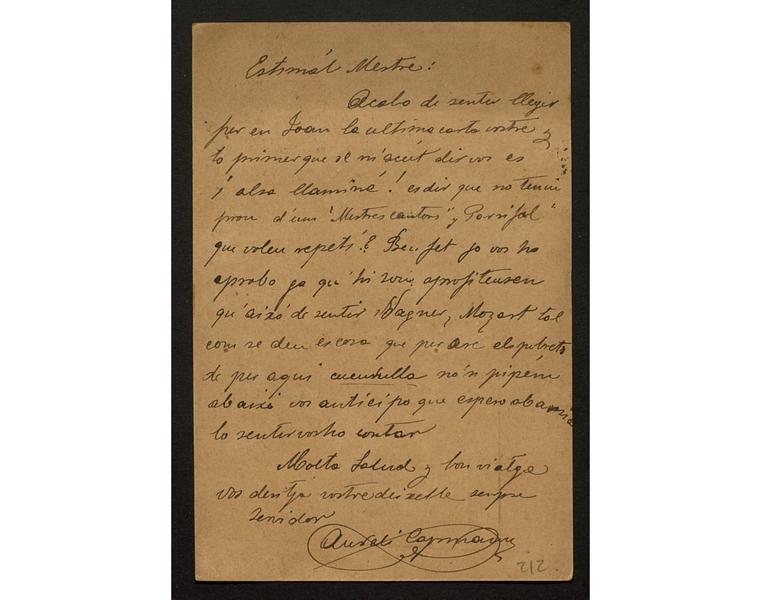 Estimát Mestre:
Acabo de sentir llegir
per en Joan la ultima carta vostre y
lo primer que se m'acút dirvos es
¡ alsa llaminé! es dir que no teniu
prou d'uns "Mestres cantors" y Parsifal"
que voleu repetí? Ben fet jo vos ho
aprobo ja qu' hi sou aprofiteusen
qu' aixó de sentir Wagner y Mozart tal
com se deu es cosa que per are els pobrets
de per aqui no'n pipém
abaixó vos anticipo que espero ab
lo sentirvosho contar
Molta Salud y bon viatge
vos desitja vostre deixeble sempre
servidor
Aureli Capmany
212